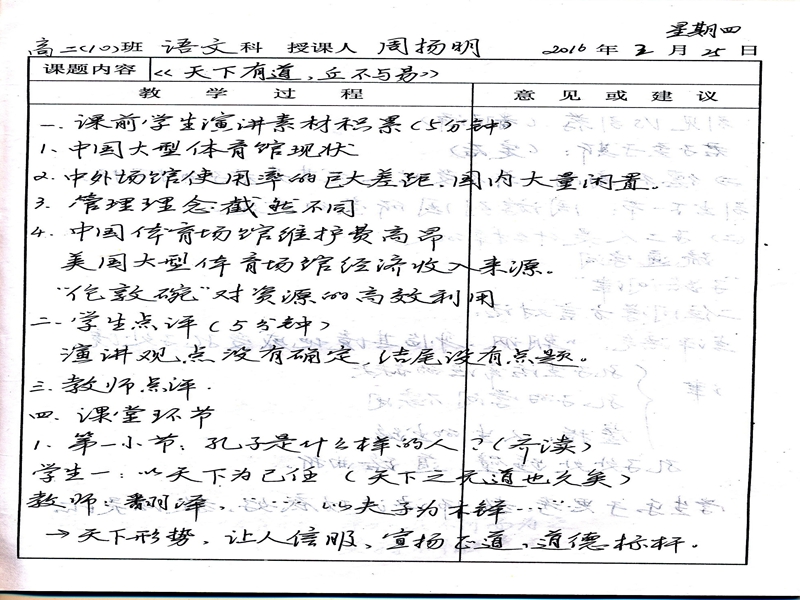 星期四
高二(10)班 语文科 授课人 周扬明 2016年 3月25日
课题内容 《天下有道,丘不与易》
教学过程 意见或建议
一.课前学生演讲素材积累(5分钟)
1、中国大型体育馆现状
2.中外场馆使用率的巨大差距.国内大量闲置。
3.管理理念截然不同
4.中国体育场馆维护费高昂
美国大型体育场馆经济收入来源。
"伦敦碗"对资源的高效利用
二.学生点评(5分钟)
演讲观点没有确定,结尾没有点题。
三.教师点评.
四.课堂环节
1.第一小节:孔子是什么样的人?(齐读)
学生一:以天下为己任(天下之无道也久矣)
教师:翻译,"……以夫子为木铎……"
→天下形势,让人信服,宣扬正道,道德标杆。